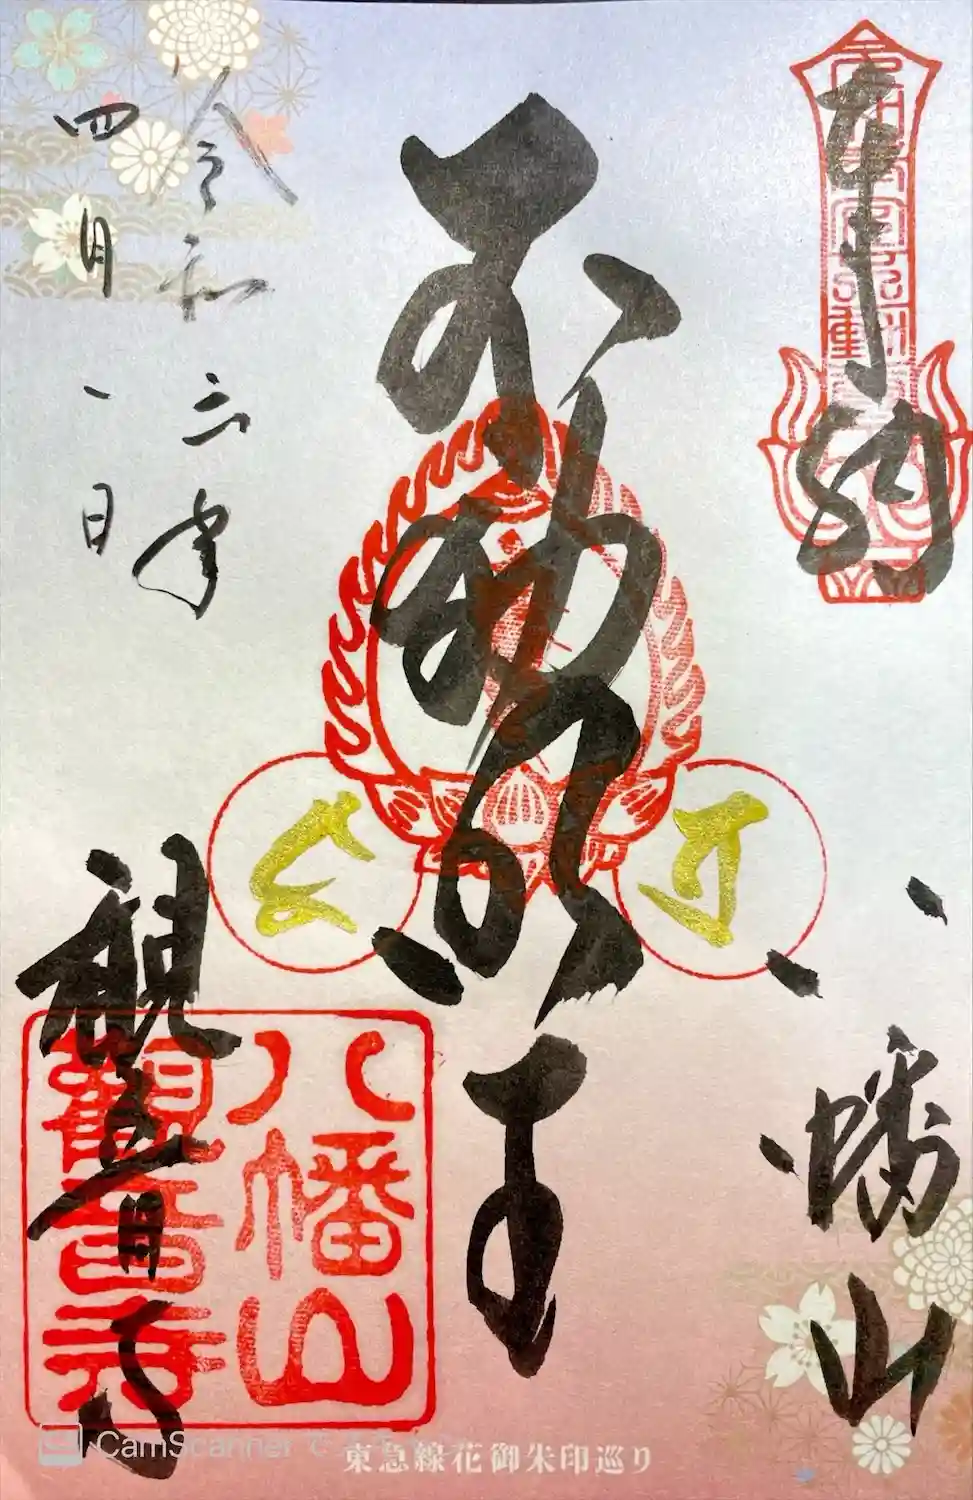 奉納
八幡山
不動明王
令和六年
四月一日
観音寺
八幡山
観音寺
東急線花御朱印巡り
CamScanner で